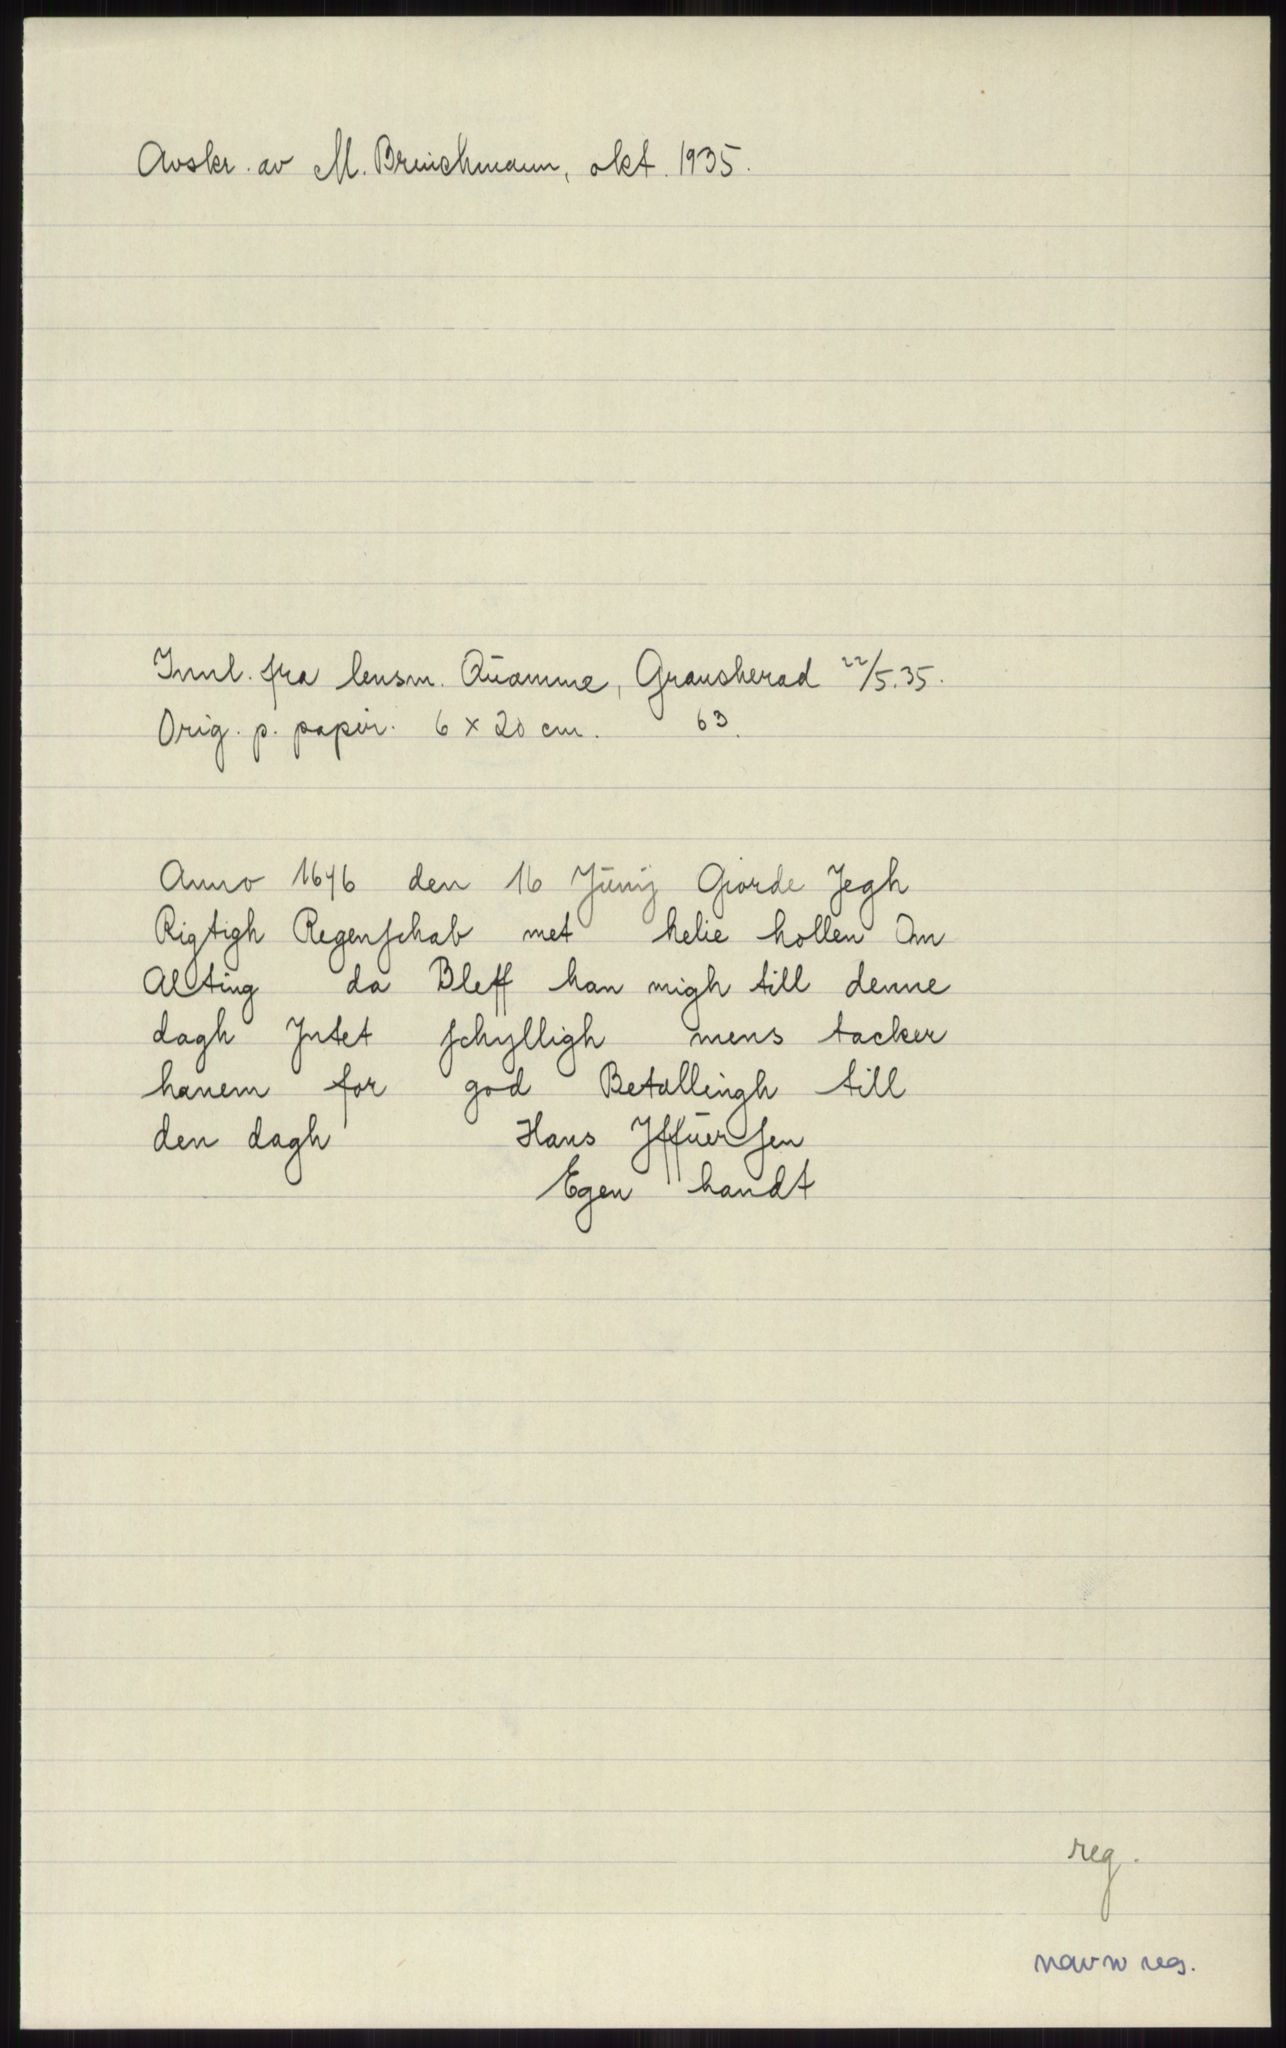 Avskr. av M. Brinchmann, okt. 1935.
Innl. fra lensm. Qūamme, Gransherad 22/5.35.
Orig. p. papir. 6 x 20 cm. 63.
Anno 1646 den 16 Jūnij Giorde Jegh
Rigtigh Regenschab met helie hollen Om
Alting da Bleff han migh till denne
dagh Intet schylligh mens tacker
hanem for god Betallingh till
den dagh Hans Iffūersen
Egen handt
reg.
navnreg.